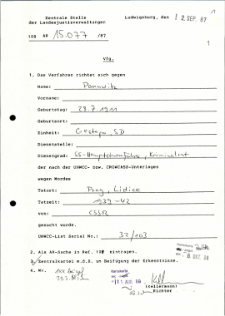 Zentrale Stelle
der Landesjustizverwaltungen
Ludwigsburg, den 12. SEP. 87
108 AR 15.077 /87
Vfg.
1. Das Verfahren richtet sich gegen
Name:
Vorname:
Geburtsdatum: 29.7.1911
Geburtsort:
Einheit: Gestapo, SD
Dienststelle:
Dienstgrad: SS-Hauptsturmführer, Kriminalrat
der nach der UNWCC- bzw. CROWCASS-Unterlagen
wegen Mordes
Tatort: Prag, Lidice
Tatzeit: 1939-42
von: CSSR
gesucht wurde.
UNWCC-List Serial Nr.: 37/103
2. Als AR-Sache in Ref. 108 eintragen.
3. Zentralkartei m.d.B. um Beifügung der Erkenntnisse.
4. Wv.
Richter